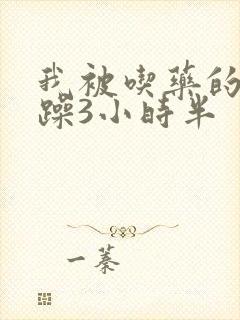 我被喫藥的
躁3小時半
一蓁